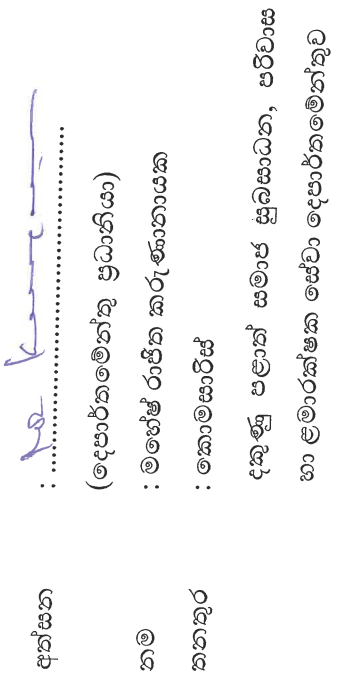 අත්සන : ............................................................
(දෙපාර්තමේන්තු ප්‍රධානියා)
නම : මහේෂ් රාජිත කරුණානායක
තනතුර : කොමසාරිස්
දකුණු පළාත් සමාජ සුබසාධන, පරිවාස
හා ළමාරක්ෂක සේවා දෙපාර්තමේන්තුව